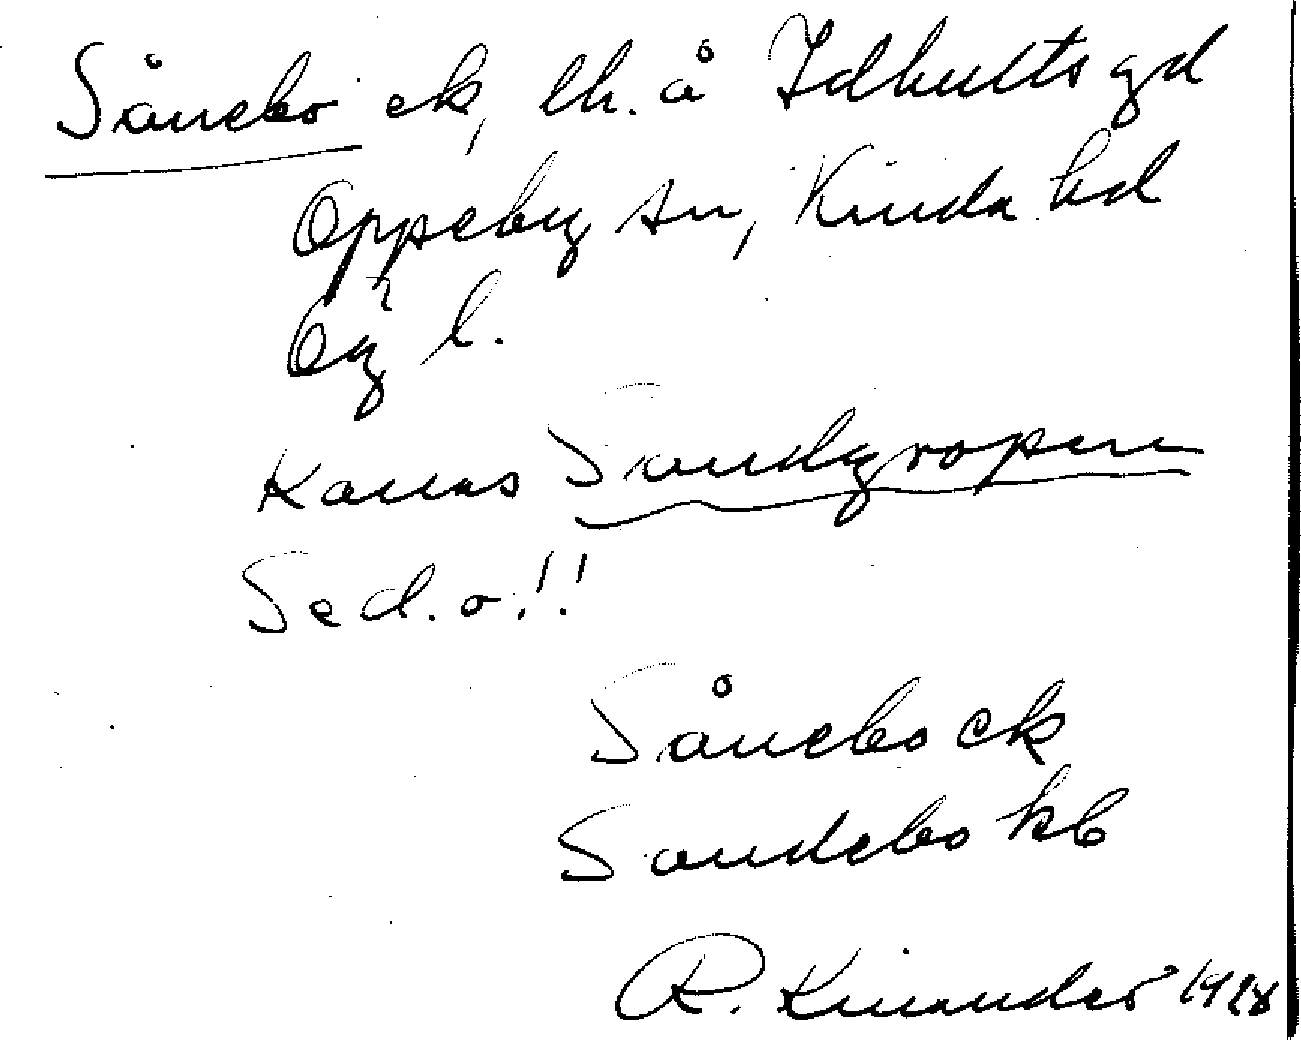 Sånebo ek, lh. å Idhults gd
Oppeby sn, Kinda hd
Ög l.
Kallas Sandgropen
Se d. o.!!
Sånebo ek
Sandebo kb
R. Kinander 1928